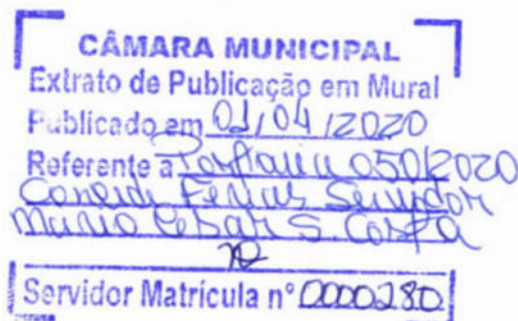 CÂMARA MUNICIPAL
Extrato de Publicação em Mural
Publicado em 01/04/2020
Referente a Portaria 050/2020
Concede Férias Servidor
Mario Cesar S. Costa
Servidor Matrícula nº 0000280